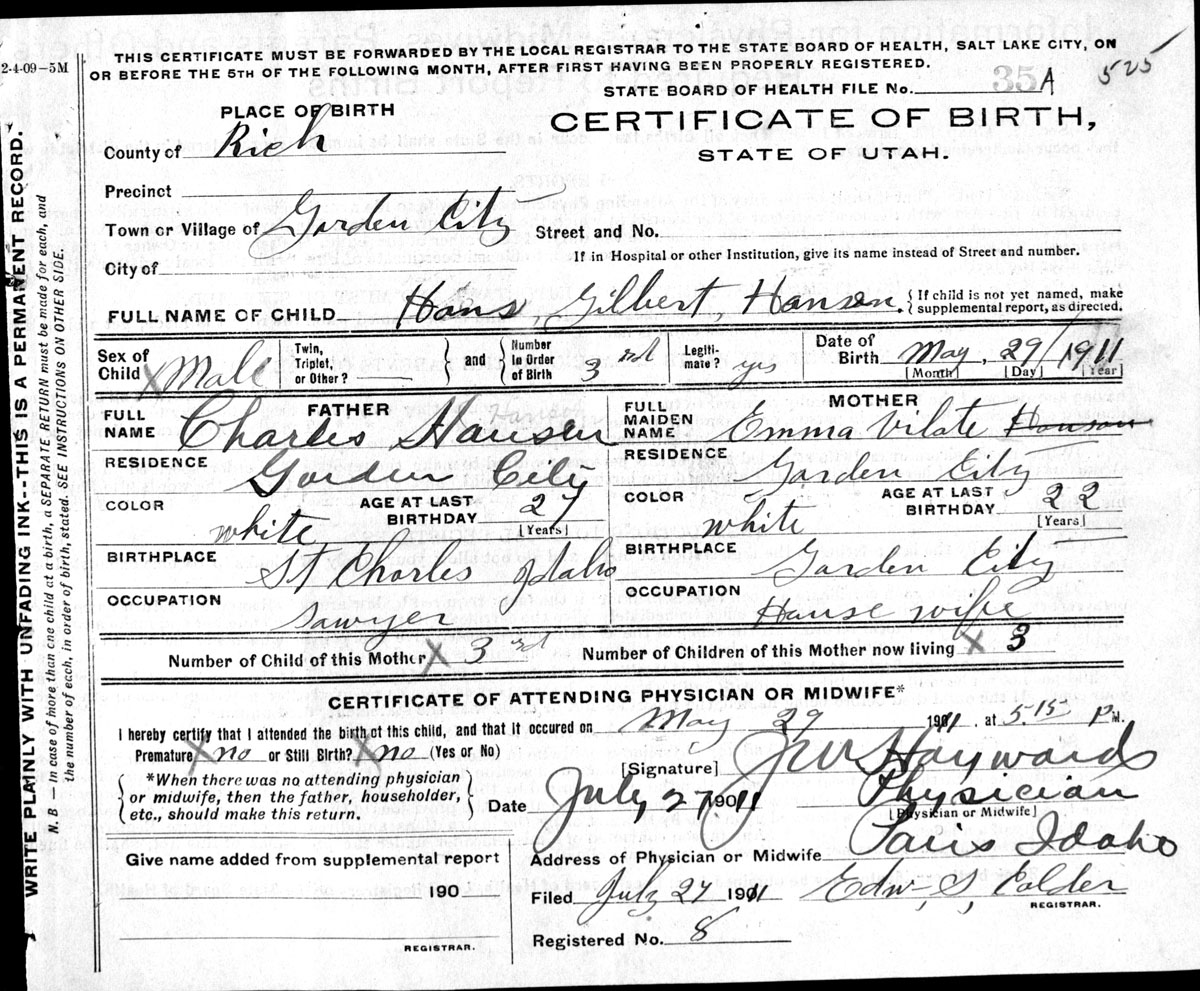 THIS CERTIFICATE MUST BE FORWARDED BY THE LOCAL REGISTRAR TO THE STATE BOARD OF HEALTH, SALT LAKE CITY, ON
2-4-09—5M OR BEFORE THE 5TH OF THE FOLLOWING MONTH, AFTER FIRST HAVING BEEN PROPERLY REGISTERED.
525
STATE BOARD OF HEALTH FILE No. 35 A
PLACE OF BIRTH
CERTIFICATE OF BIRTH,
County of Rich
STATE OF UTAH.
Precinct
Town or Village of Garden City Street and No.
City of If in Hospital or other Institution, give its name instead of Street and number.
FULL NAME OF CHILD Hans, Gilbert, Hansen. {If child is not yet named, make supplemental report, as directed.
Sex of Child X Male Twin, Triplet, or Other? } and { Number in Order of Birth 3rd Legiti-mate? yes Date of Birth May, 29/1911
[Month] [Day] [Year]
FATHER MOTHER
FULL NAME Charles Hansen Hanson FULL MAIDEN NAME Emma Vilate Hanson
RESIDENCE Garden City RESIDENCE Garden City
COLOR white AGE AT LAST BIRTHDAY 27 [Years] COLOR white AGE AT LAST BIRTHDAY 22 [Years]
BIRTHPLACE St Charles Idaho BIRTHPLACE Garden City
OCCUPATION Sawyer OCCUPATION House wife
Number of Child of this Mother X 3rd Number of Children of this Mother now living X 3
CERTIFICATE OF ATTENDING PHYSICIAN OR MIDWIFE*
I hereby certify that I attended the birth of this child, and that it occured on May 29 1911. at 5:15 P M.
Premature X no or Still Birth? X no (Yes or No)
[Signature] Hayward
*When there was no attending physician
or midwife, then the father, householder,
etc., should make this return.
Date July 27 1911 Physician
[Physician or Midwife]
Address of Physician or Midwife Paris Idaho
Give name added from supplemental report
190
REGISTRAR.
Filed July 27 1911 Edw, S, Calder
REGISTRAR.
Registered No. 8
WRITE PLAINLY WITH UNFADING INK--THIS IS A PERMANENT RECORD.
N. B.—In case of more than one child at a birth, a SEPARATE RETURN must be made for each, and
the number of each, in order of birth, stated. SEE INSTRUCTIONS ON OTHER SIDE.